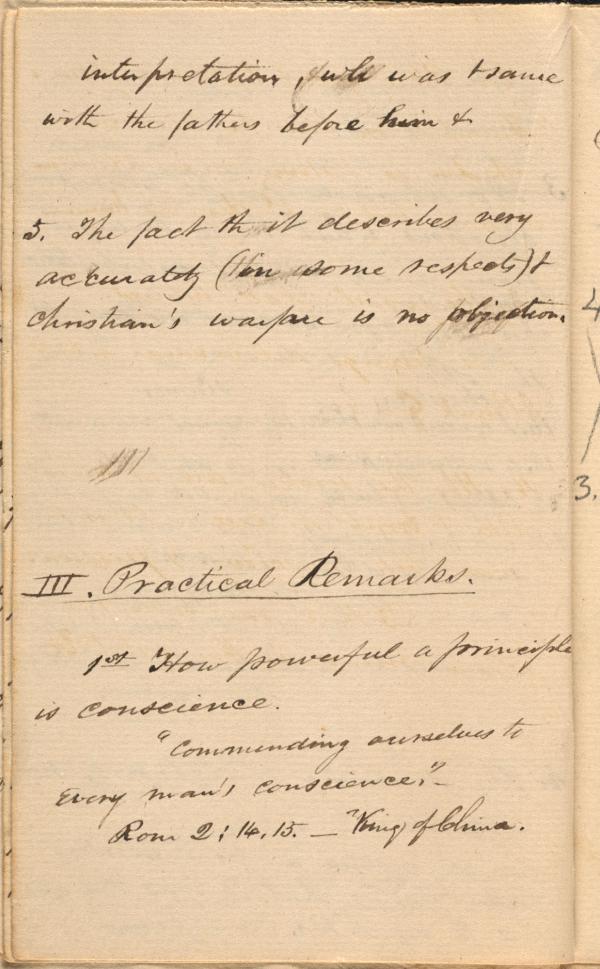 interpretation, & wh was t same
with the fathers before him &
5. The fact th it describes very
accurately (in some respects) t
Christian's warfare is no objection.
III. Practical Remarks.
1st How powerful a principle
is conscience.
"Commending ourselves to
Every man's conscience."—
Rom 2:14,15. — "King of China.
4
3.